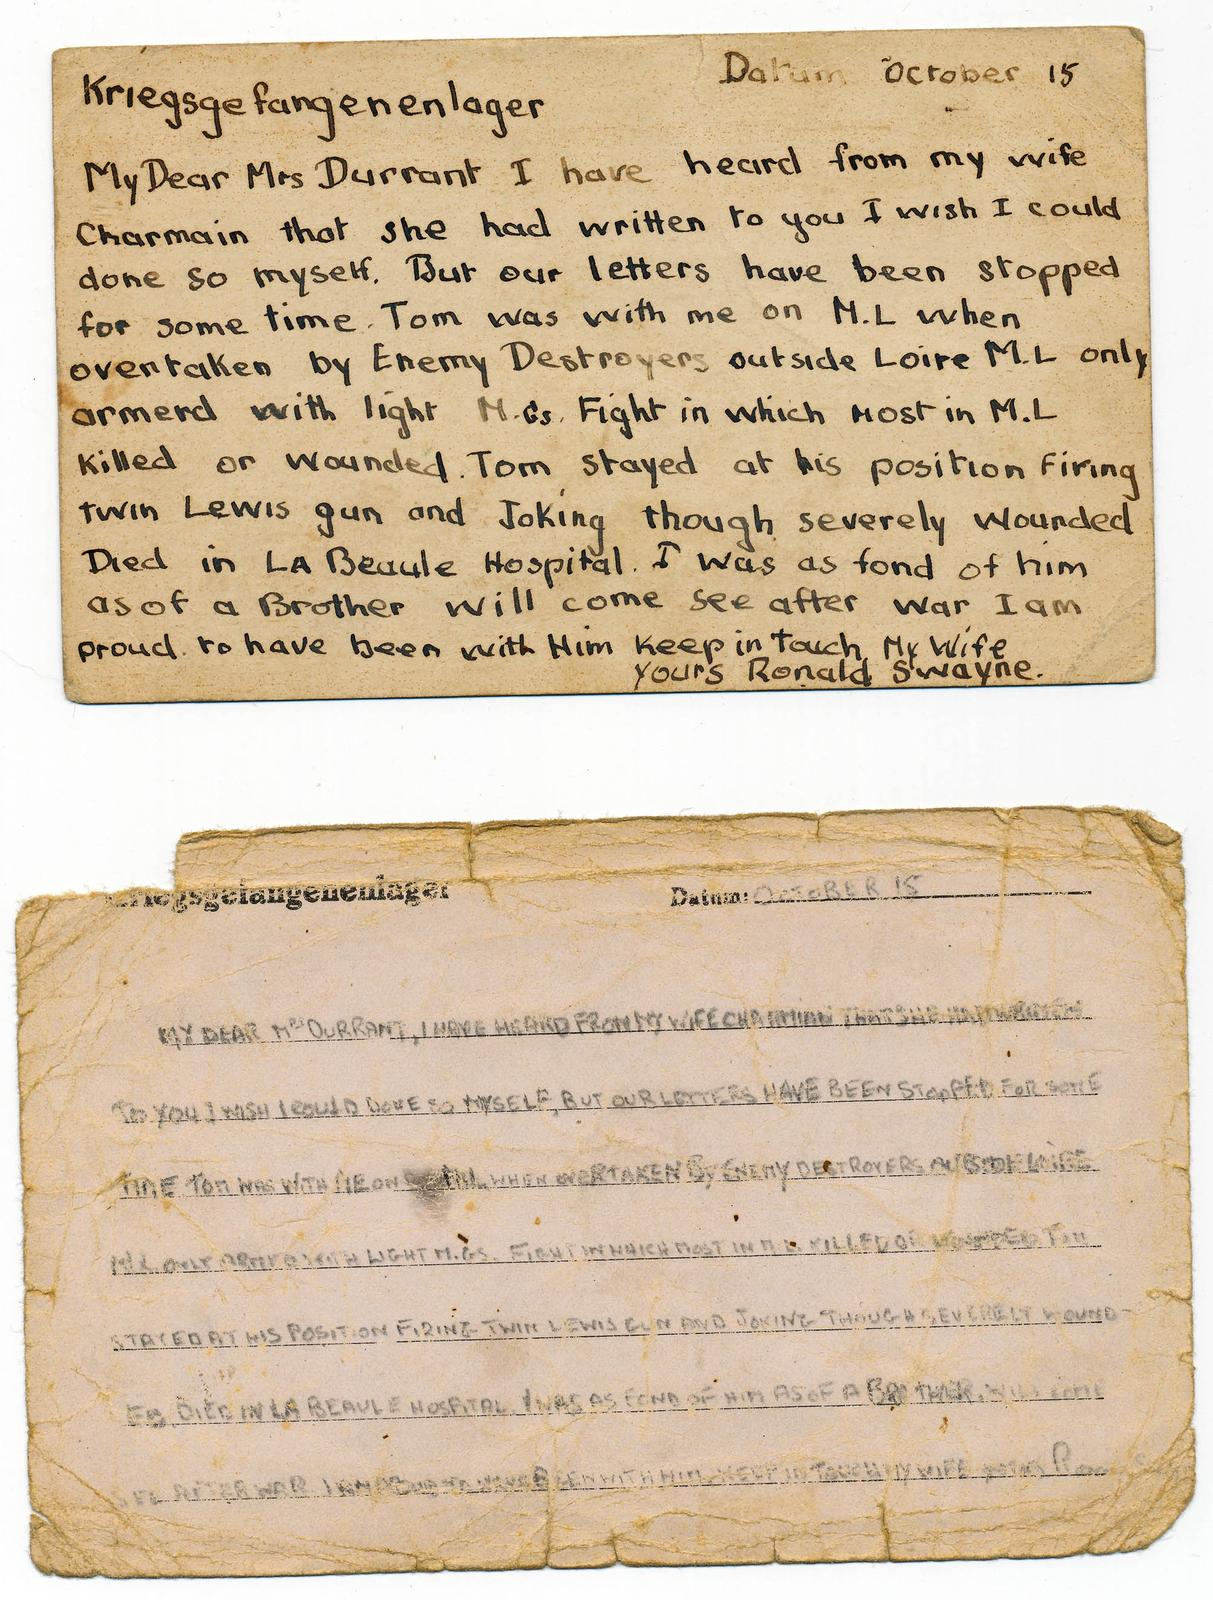 Datum October 15
Kriegsgefangenenlager
My Dear Mrs Durrant I have heard from my wife
Charmain that she had written to you I wish I could
done so myself. But our letters have been stopped
for some time. Tom was with me on M.L when
overtaken by Enemy Destroyers outside Loire M.L only
armerd with light M.Gs. Fight in which most in M.L
killed or wounded. Tom stayed at his position firing
twin Lewis gun and Joking though severely wounded
Died in LA Beaule Hospital. I was as fond of him
as of a Brother will come see after war I am
proud. to have been with Him Keep in Touch My Wife
yours Ronald Swayne.
Kriegsgefangenenlager Datum: OCTOBER 15
MY DEAR MRS DURRANT, I HAVE HEARD FROM MY WIFE CHARMIAN THAT SHE HAD WRITTEN
TO YOU I WISH I COULD DONE SO MYSELF, BUT OUR LETTERS HAVE BEEN STOPPED FOR SOME
TIME TOM WAS WITH ME ON M.L. WHEN OVERTAKEN BY ENEMY DESTROYERS OUTSIDE LOIRE
M.L. ONLY ARMED WITH LIGHT M.GS. FIGHT IN WHICH MOST IN M.L. KILLED OR WOUNDED TOM
STAYED AT HIS POSITION FIRING TWIN LEWIS GUN AND JOKING THOUGH SEVERELY WOUND-
ED DIED IN LA BEAULE HOSPITAL I WAS AS FOND OF HIM AS OF A BROTHER, WILL COME
SEE AFTER WAR I AM PROUD TO HAVE BEEN WITH HIM. KEEP IN TOUCH MY WIFE yours